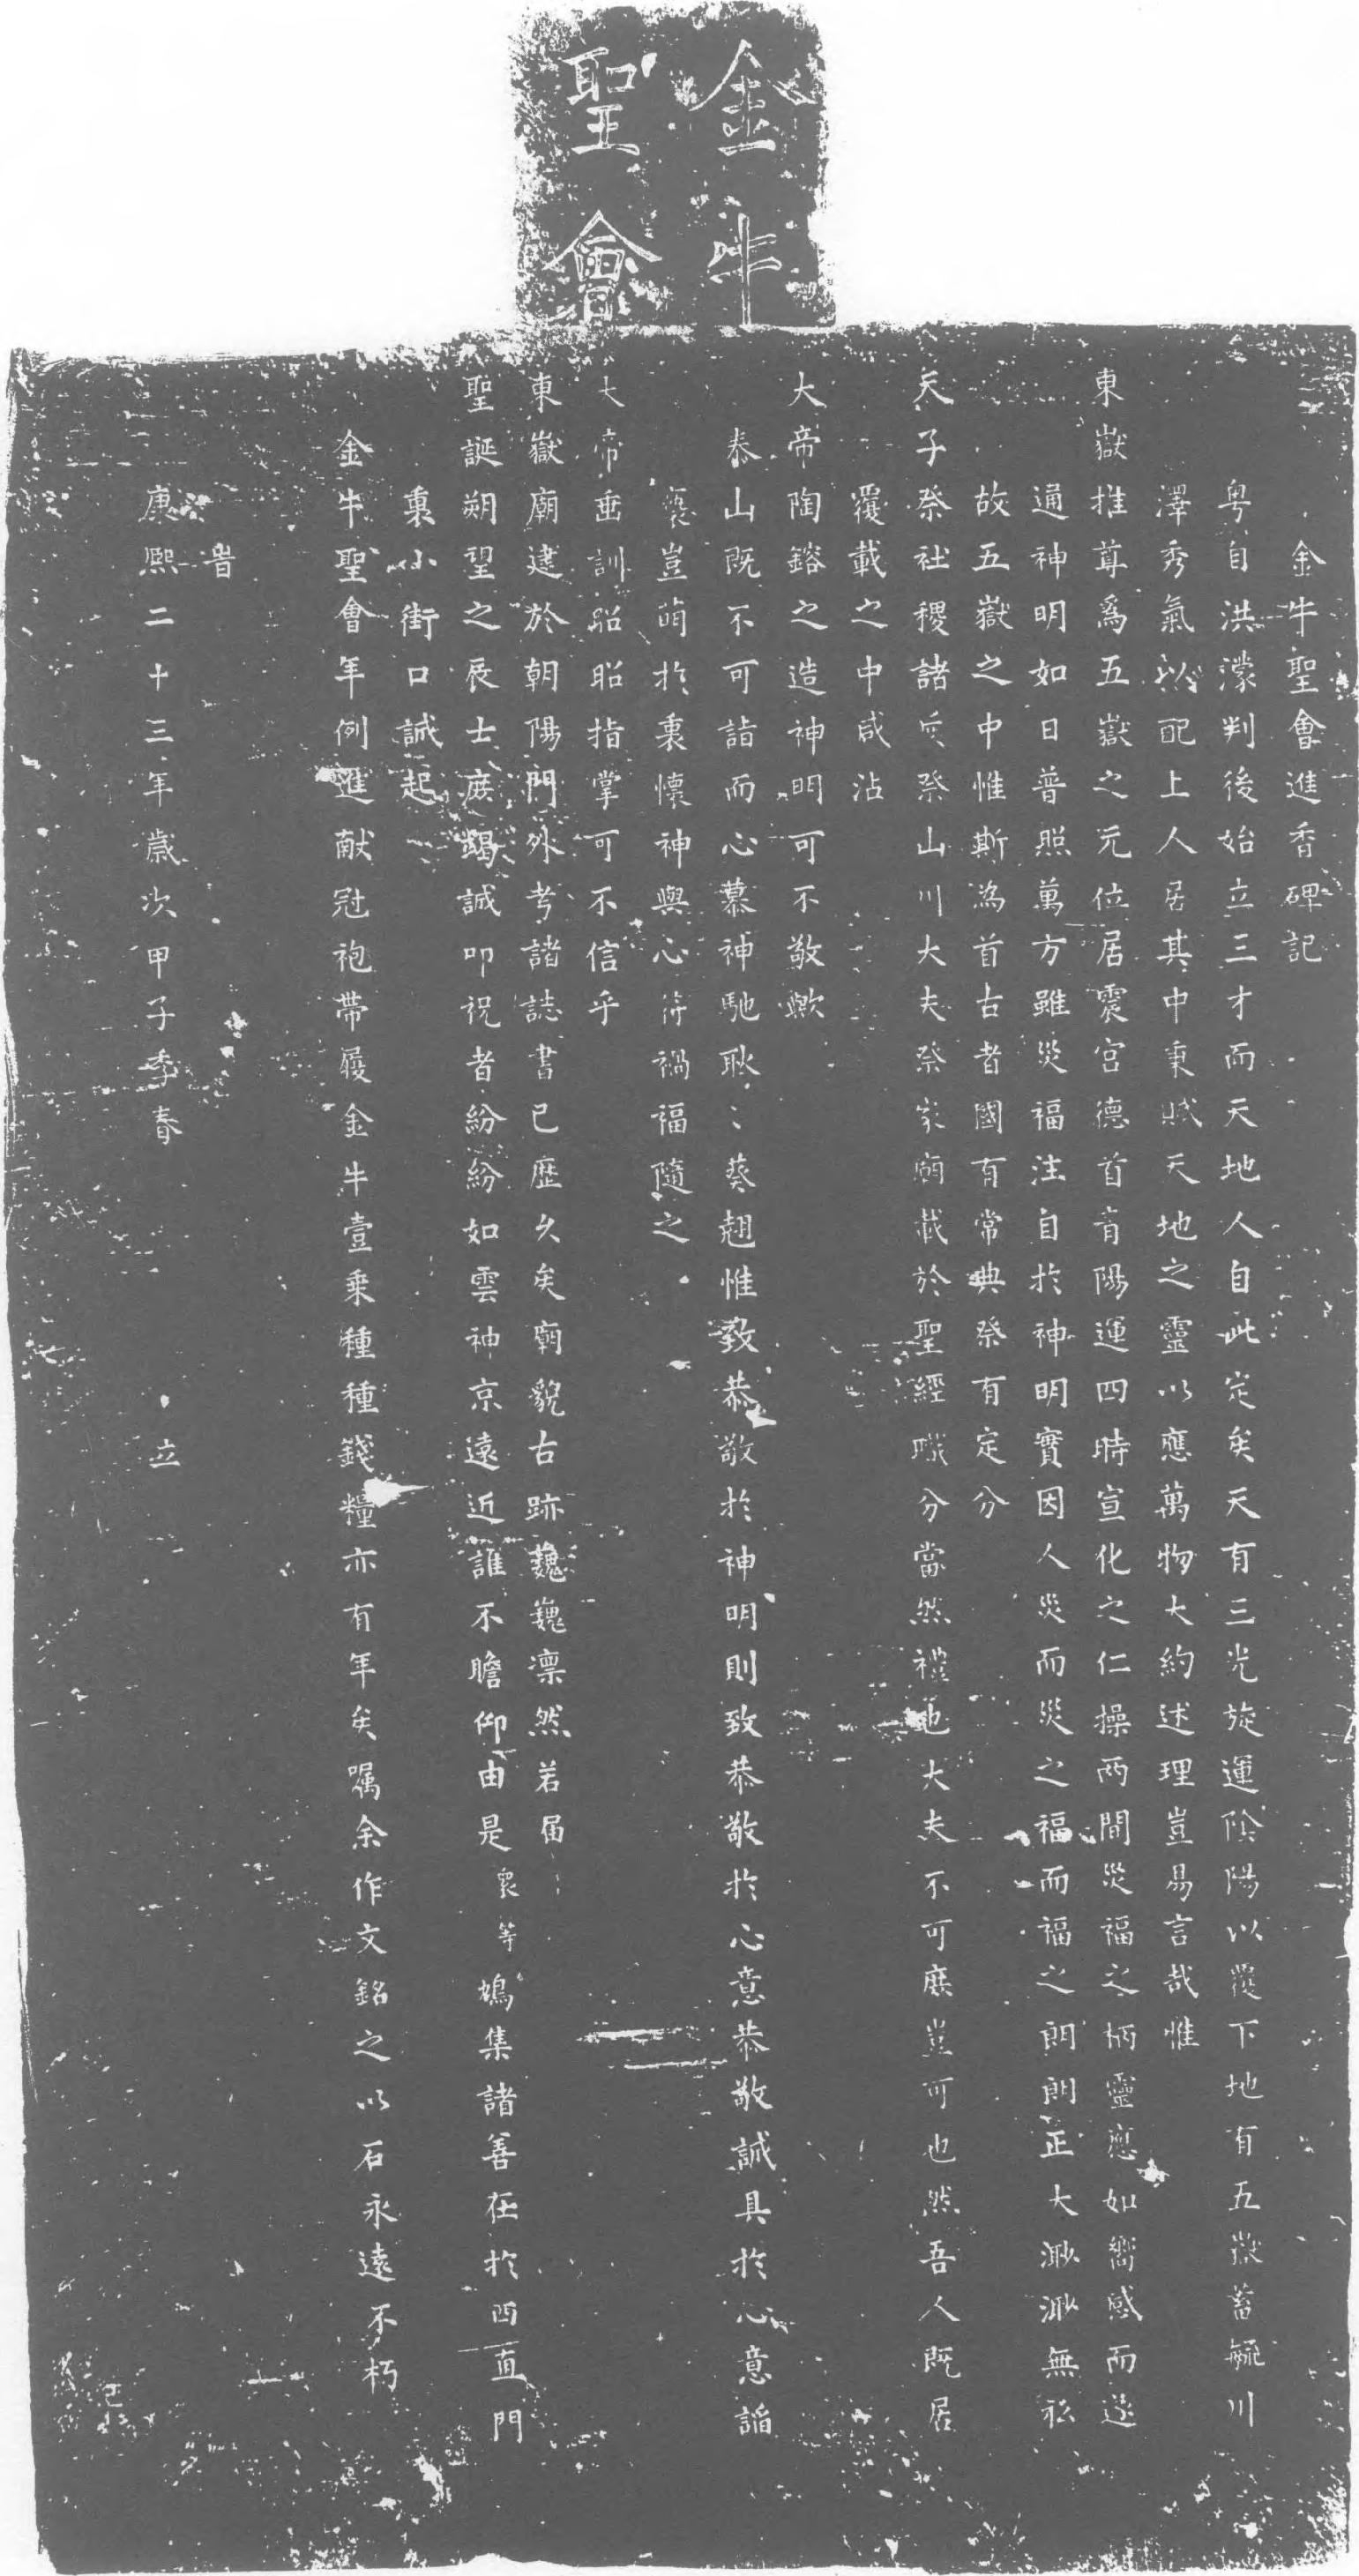 金牛
聖會
金牛聖會進香碑記
粤自洪濛判後始立三才而天地人自此定矣天有三光旋運陰陽以覆下地有五嶽蓄毓川
澤秀氣以配上人居其中秉賦天地之靈以應萬物大約述理豈易言哉惟
東嶽推尊爲五嶽之元位居震宫德首青陽運四時宣化之仁操兩間災福之柄靈應如嚮感而遂
通神明如日普照萬方雖災福注自於神明實因人災而災之福而福之朗朗正大渺渺無私
故五嶽之中惟斯為首古者國有常典祭有定分
天子祭社稷諸侯祭山川大夫祭家廟載於聖經職分當然禮也大夫不可庶豈可也然吾人既居
覆載之中咸沾
大帝陶鎔之造神明可不敬歟
泰山既不可詣而心慕神馳耿〻葵翹惟致恭敬於神明則致恭敬於心意恭敬誠具於心意謟
褻豈萌於裏懷神與心符禍福隨之
大帝垂訓昭昭指掌可不信乎
東嶽廟建於朝陽門外考諸誌書已歷久矣廟貌古跡巍巍凛然若届
聖誕朔望之辰士庶竭誠叩祝者紛紛如雲神京遠近誰不瞻仰由是衆等鳩集諸善在於西直門
裏小街口誠起
金牛聖會年例進献冠袍帶履金牛壹乘種種錢糧亦有年矣嘱余作文銘之以石永遠不朽
旹
康熙二十三年歲次甲子季春立